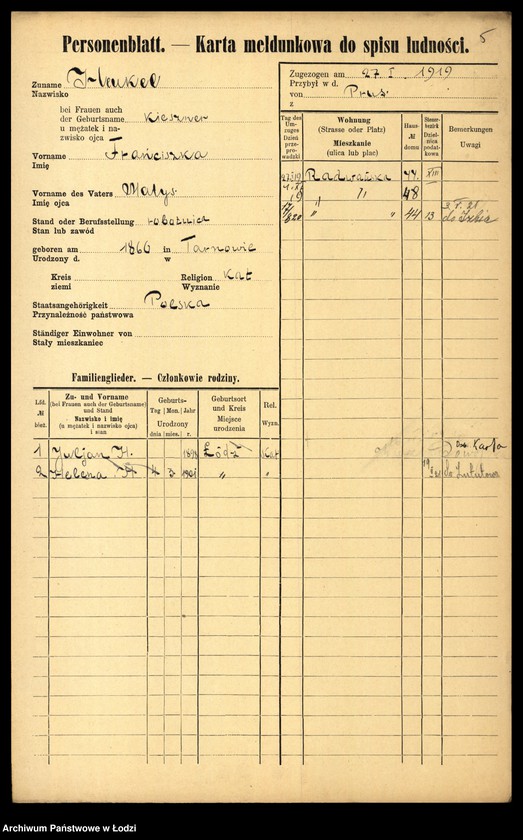 5
Personenblatt. — Karta meldunkowa do spisu ludności.
Zuname
Nazwisko
bei Frauen auch
der Geburtsname Kiesner
u mężatek i na-
zwisko ojca
Vorname Franciszka
Imię
Vorname des Vaters Matys
Imię ojca
Stand oder Berufsstellung robotnica
Stan lub zawód
geboren am 1866 in Tarnowie
Urodzony d. w
Kreis Religion Kat
ziemi Wyznanie
Staatsangehörigkeit Polska
Przynależność państwowa
Ständiger Einwohner von
Stały mieszkaniec
Zugezogen am 27 I 1919
Przybył w d.
von Prus.
z
Tag des Um-zuges Dzień prze-pro-wadzki
Wohnung
(Strasse oder Platz)
Mieszkanie
(ulica lub plac)
Haus-
№
domu
Steuer-bezirk Dziel-nica podat-kowa
Bemerkungen
Uwagi
27 I 19 Radwańska 44 XIII
" 48
" " 44 13
Familienglieder. — Członkowie rodziny.
Lfd.
№
bież.
Zu- und Vorname
(bei Frauen auch der Geburtsname)
und Stand
Nazwisko i imię
(u mężatek i nazwisko ojca)
i stan
Geburts-
Tag Mon. Jahr
Urodzony
dnia mies. r.
Geburtsort
und Kreis
Miejsce
urodzenia
Rel.
Wyzn.
1 Juljan H. Łódź Kat
2 Helena H 4 3 1901 " "
Karta
Archiwum Państwowe w Łodzi